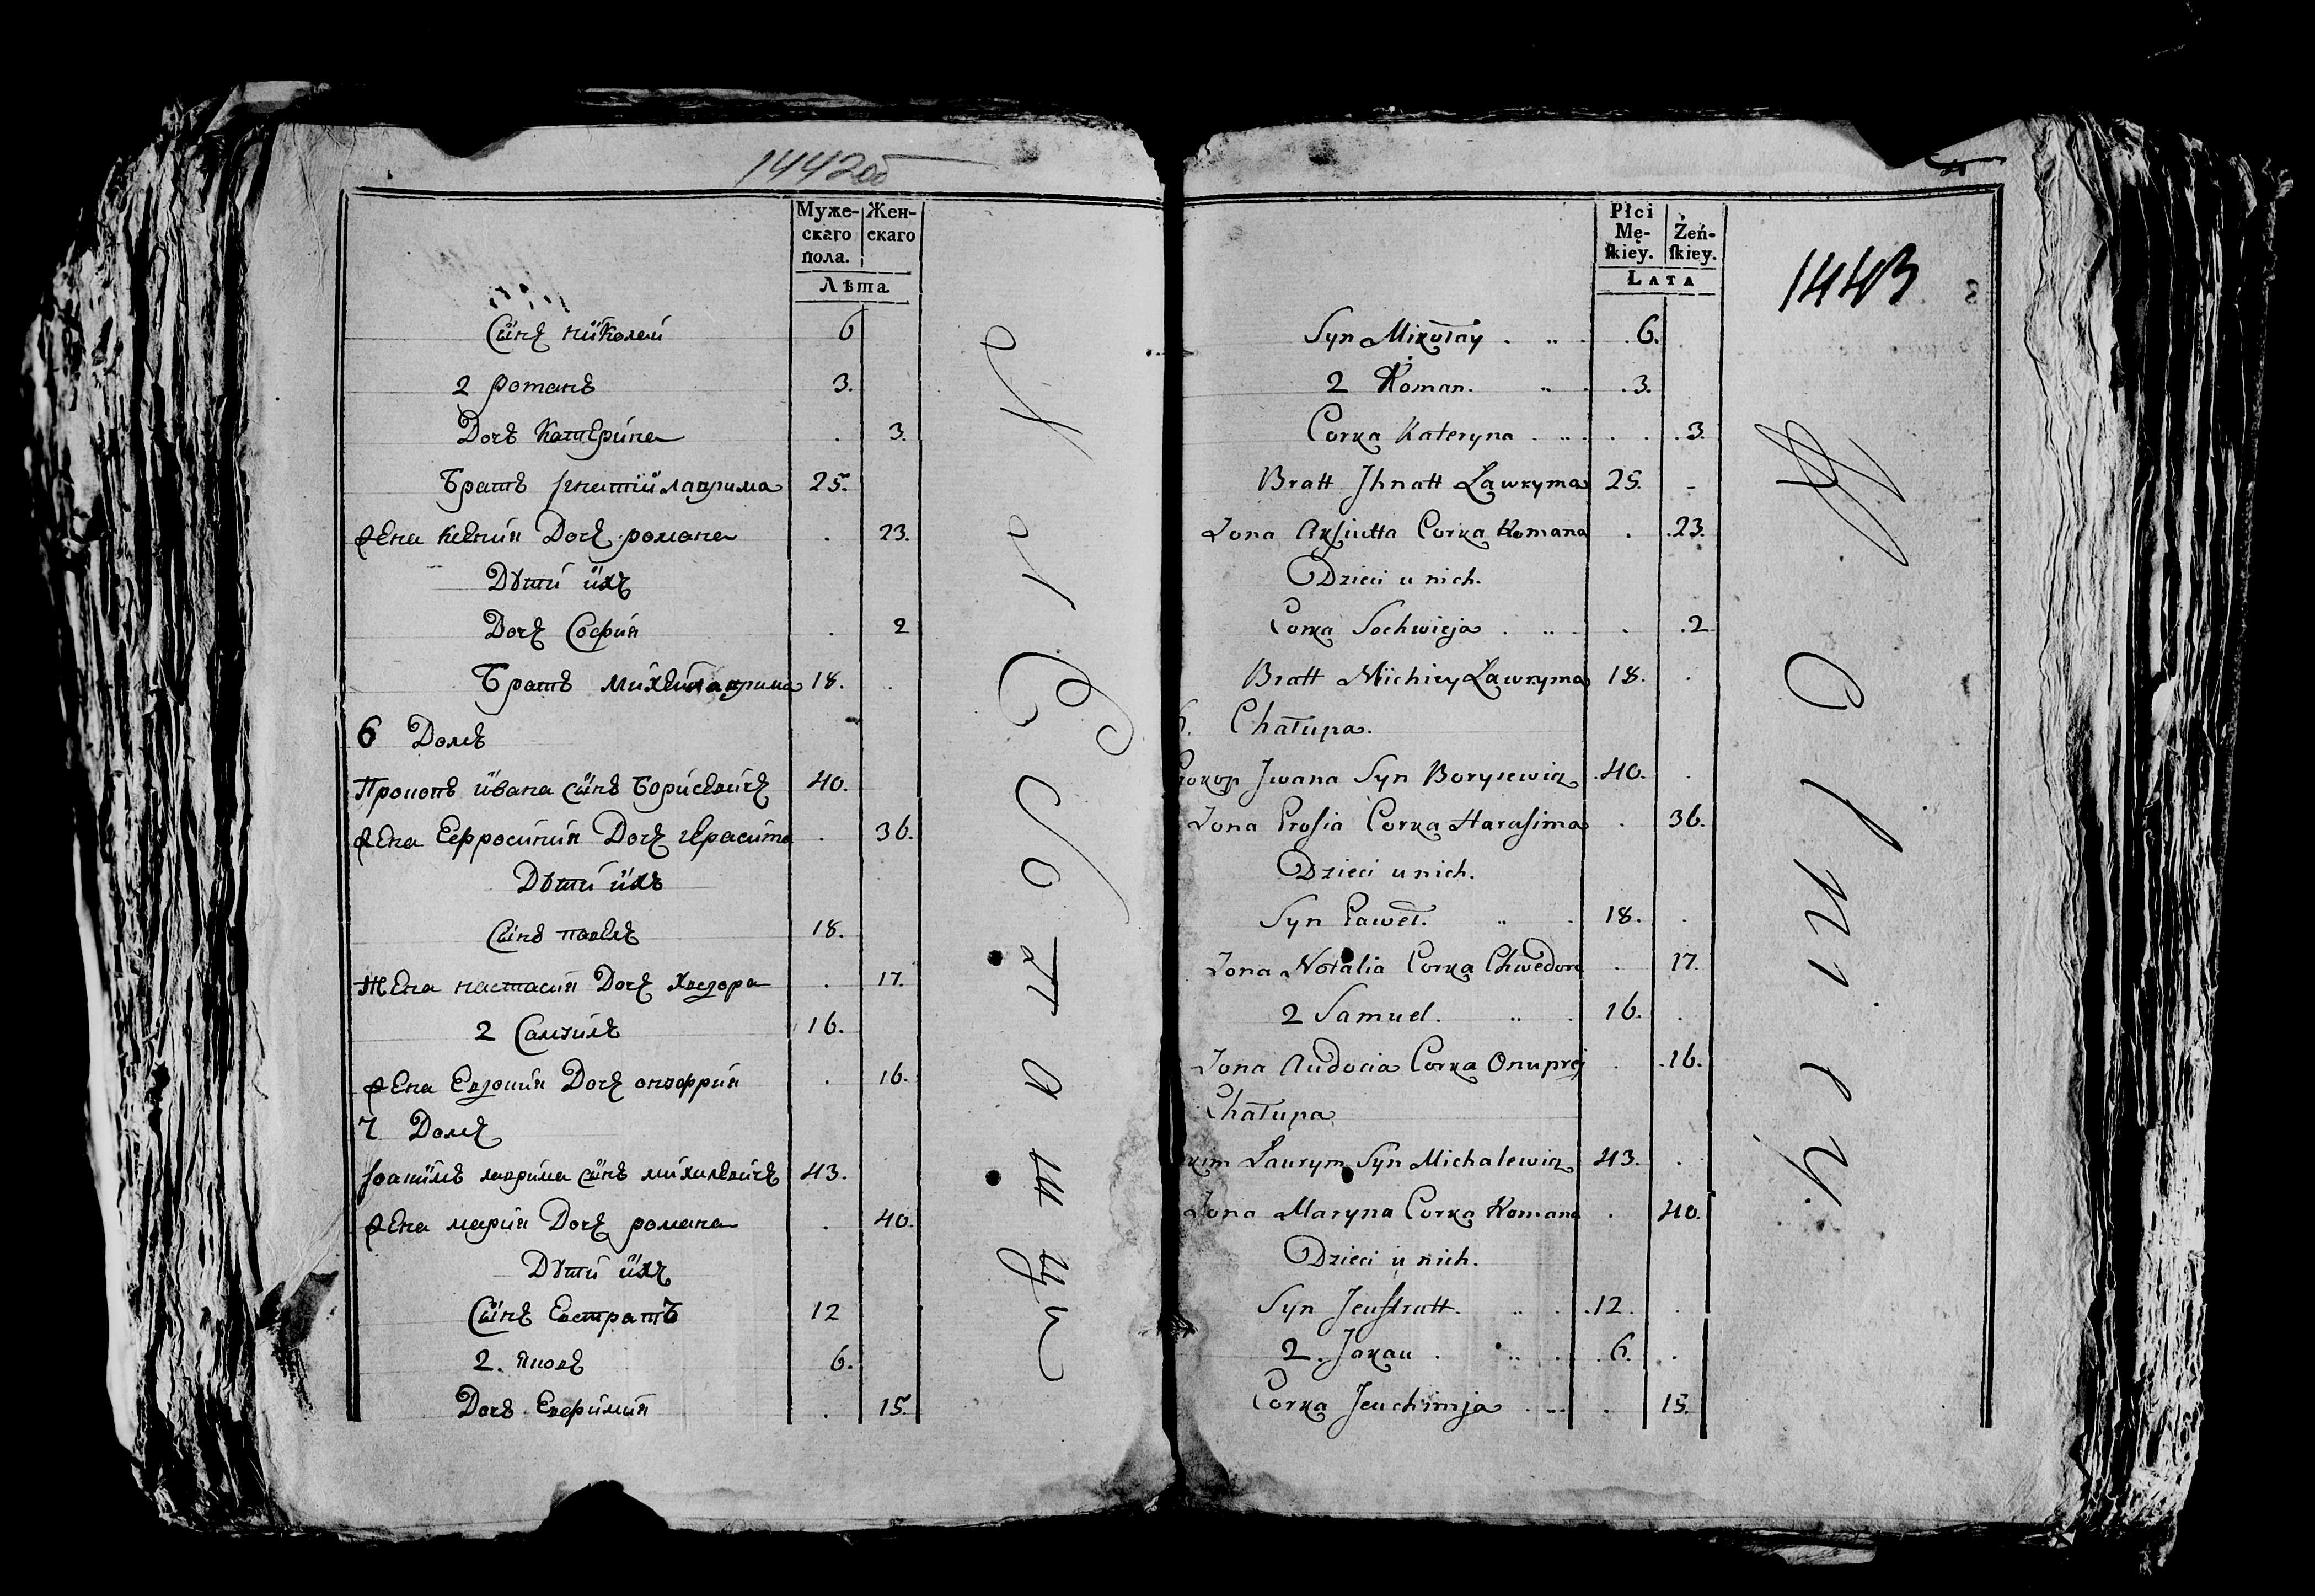 1442об
Муже- Жен-
скаго скаго
пола.
Лѣта
Сынъ николай 6
2 романъ 3.
Дочь Катерина . 3.
Братъ игнатій лаврима 25.
Жена ксения Дочь романа . 23.
Дѣти ихъ
Дочь София . 2
Братъ михей лаврима 18.
6 Домъ
Прокопъ ивана сынъ Борисевичъ 40.
Жена Ефросиния Дочь герасима . 36.
Дѣти ихъ
Сынъ павелъ 18.
Жена настасия Дочь хведора . 17.
2 Самуилъ 16.
Жена Евдокия Дочь онофрия . 16.
7 Домъ
иоакимъ лаврима сынъ михалевичъ 43.
Жена мария Дочь романа . 40.
Дѣти ихъ
Сынъ Евстратъ 12
2. яковъ 6.
Дочь Евфимия . 15.
Płci
Mę- Żeń-
skiey. skiey.
Lata
1443
Syn Mikołay 6.
2 Roman. 3.
Corka Kateryna 3.
Bratt Jhnatt Lawryma 25.
Zona Aksiutta Corka Romana . 23.
Dzieci u nich.
Corka Sochwieja . 2
Bratt Michiey Lawryma 18.
6. Chałupa.
Prokop Jwana Syn Borysewicz 40.
Zona Prosia Corka Harasima . 36.
Dzieci u nich.
Syn Paweł. 18.
Zona Notalia Corka Chwedora . 17.
2 Samuel. 16.
Zona Audocia Corka Onuprej . 16.
Chałupa
kim Laurym Syn Michalewicz 43.
Zona Maryna Corka Romana . 40.
Dzieci u nich.
Syn Jeustratt. 12.
2. Jakau 6.
Corka Jeuchimja 15.